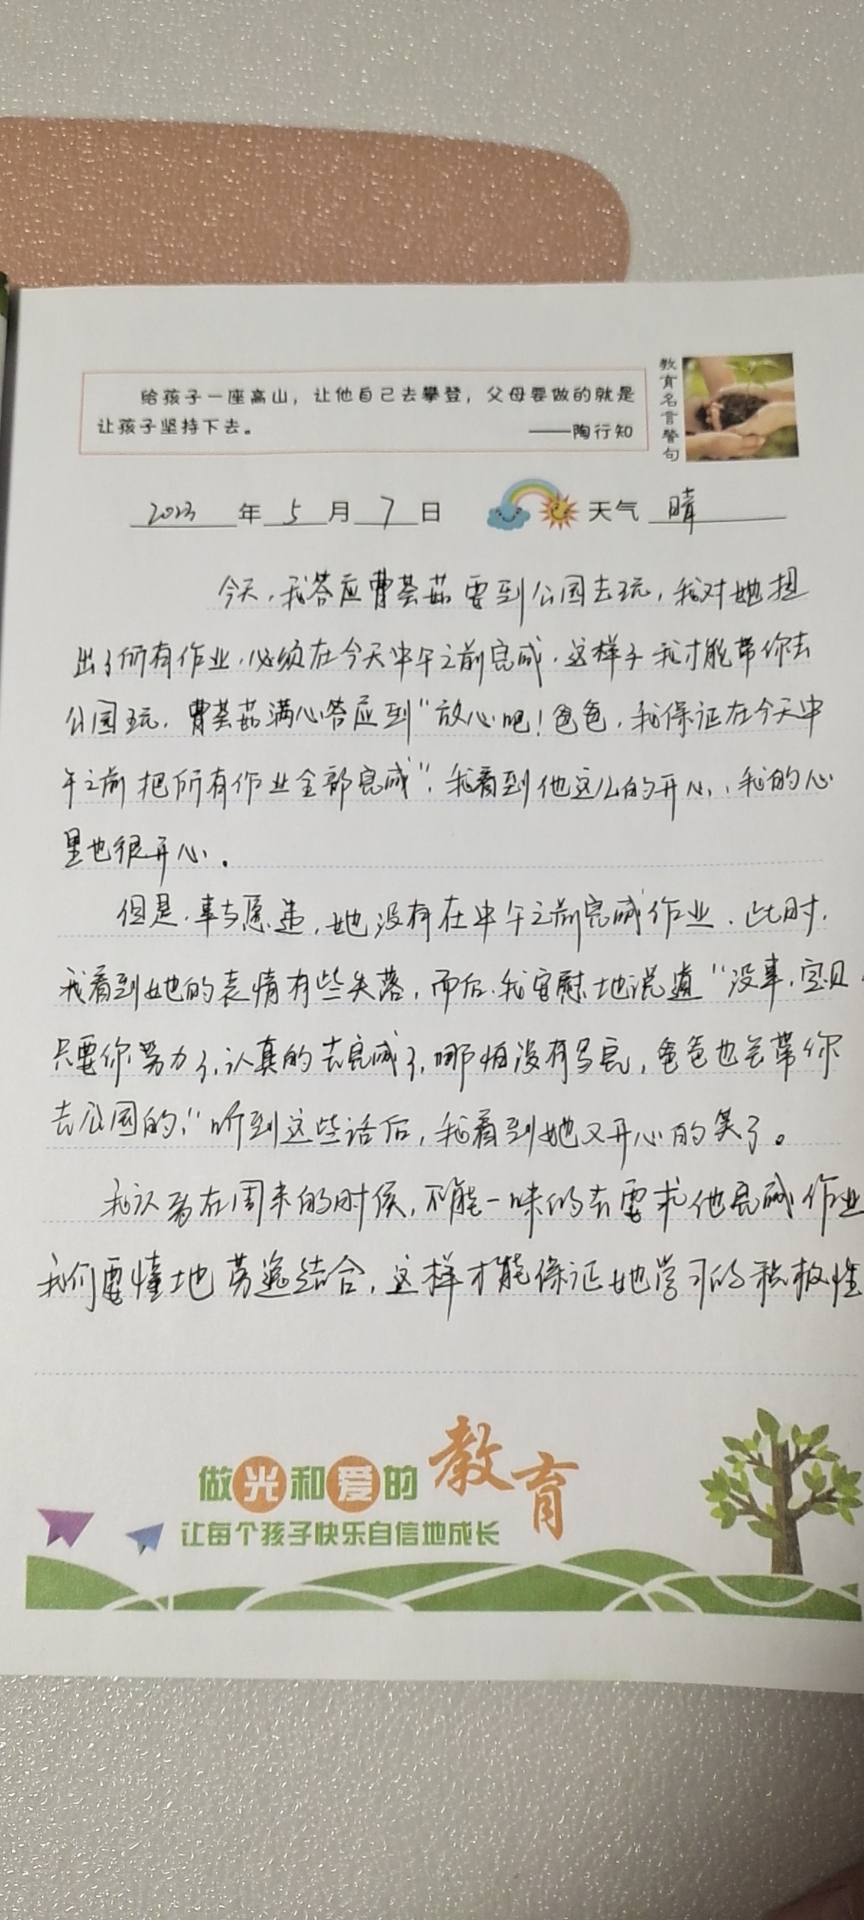 给孩子一座高山，让他自己去攀登，父母要做的就是
让孩子坚持下去。 ——陶行知
教育名言警句
2023年5月7日 天气 晴
今天，我答应曹芸茹要到公园去玩，我对她提
出了所有作业，必须在今天中午之前完成，这样子我才能带你去
公园玩，曹芸茹满心答应到“放心吧！爸爸，我保证在今天中
午之前把所有作业全部完成”，我看到他这么的开心，我的心
里也很开心。
但是，事与愿违，她没有在中午之前完成作业，此时，
我看到她的表情有些失落，而后，我安慰地说道“没事，宝贝
只要你努力了，认真的去完成了，哪怕没有完，爸爸也会带你
去公园的，”听到这些话后，我看到她又开心的笑了。
我认为在周末的时候，不能一味的去要求他完成作业
我们要懂地劳逸结合，这样才能保证她学习的积极性
做光和爱的教育
让每个孩子快乐自信地成长